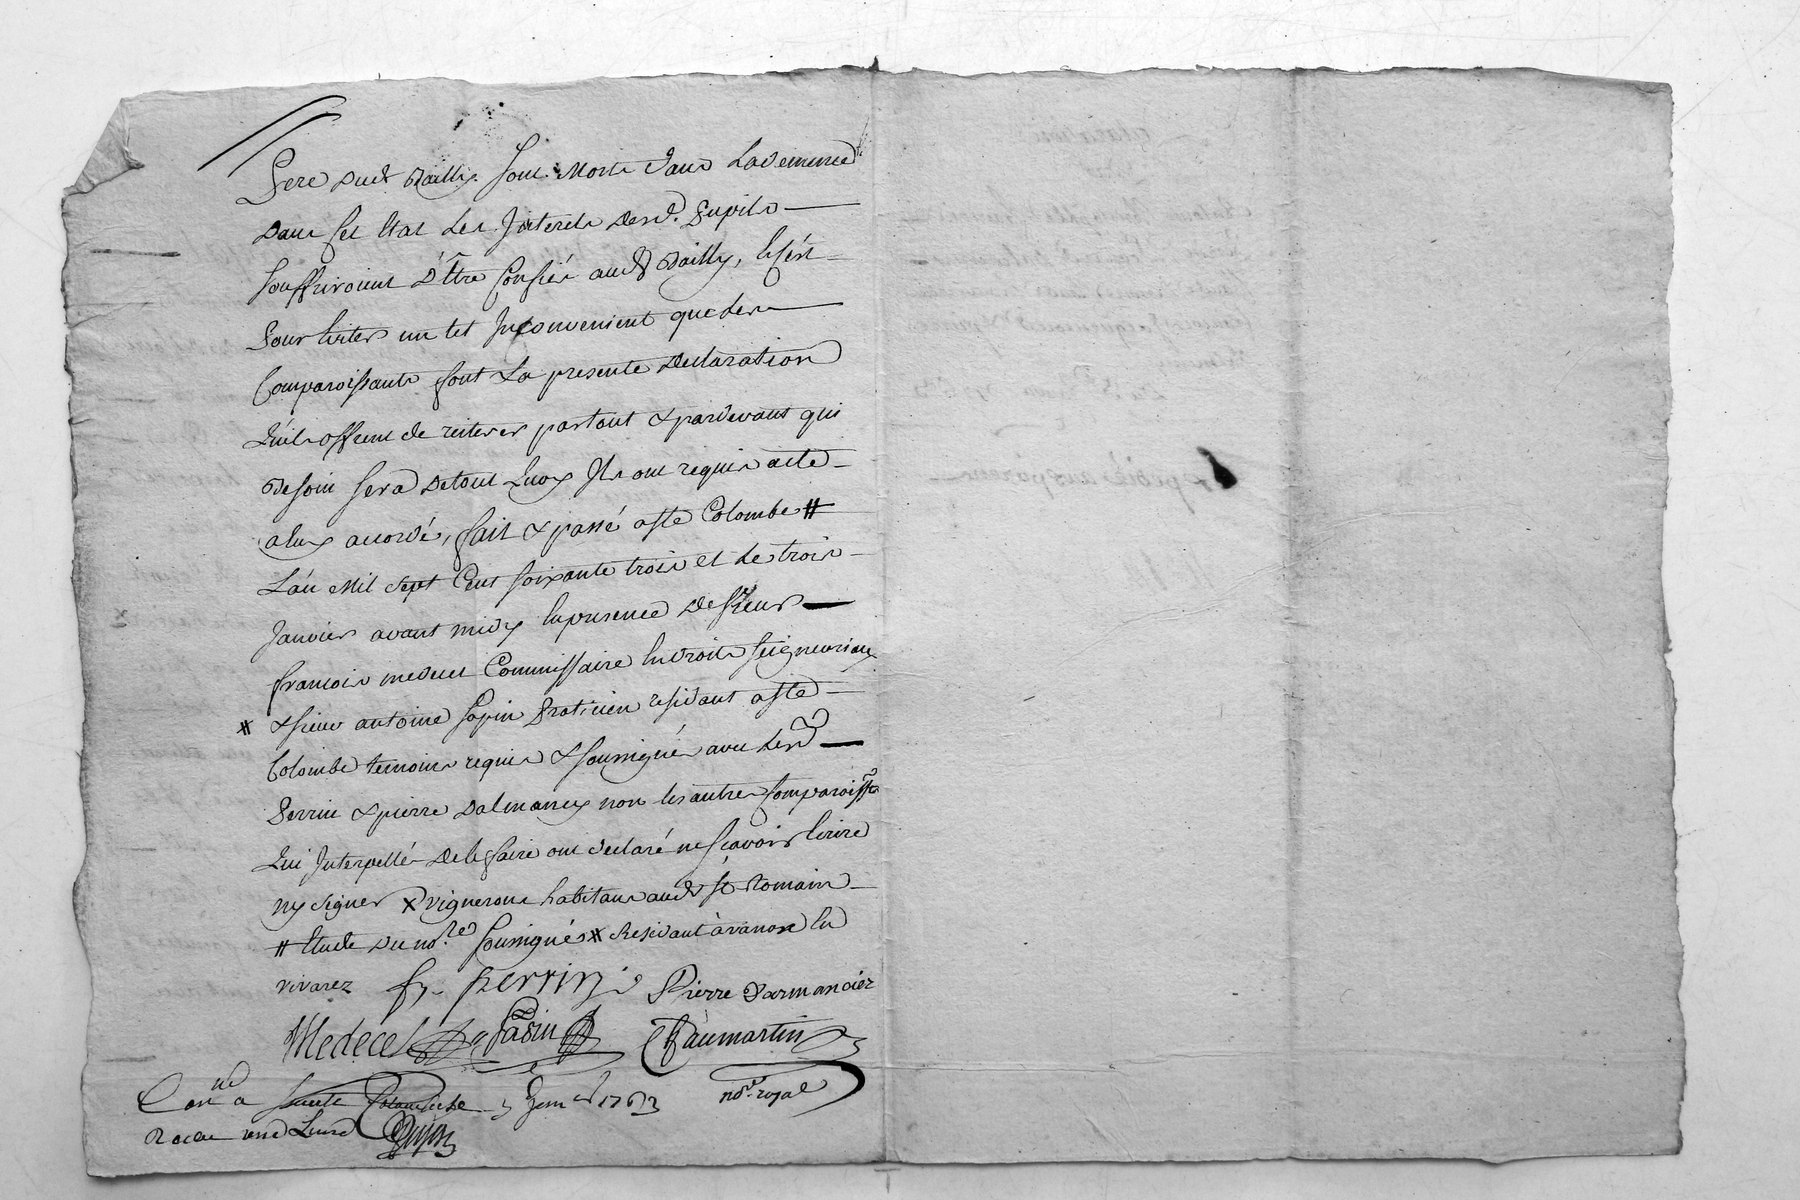 Pere dud. Bailly sont morts dans la demence
Dans cet Etat les Interets desd. Pupils
souffriroient d'être Confiés aud Bailly, C'est
Pour Eviter un tel Inconvenient que les
Comparoissants font la presente declaration
Qu'ils offrent de reiterer partout & pardevant qui
Besoin sera de tout Quoy Ils ont requis acte
a Eux accordé, fait & passé a Ste Colombe #
L'an Mil sept Cent soixante trois et le trois
Janvier avant midy En presence de sieur
francois medecel Commissaire En droits seigneuriaux
# & sieur antoine Papin Praticien residant a Ste
Colombe temoins requis & soussignés avec lesd
Perrin & pierre Dalmancy non les autres Comparoissts
Qui Interpellés de le faire ont declaré ne sçavoir Ecrire
ny signer X vignerons habitans aud St Romain
# Etude du nore soussigné X Residant à vanose En
vivarez fs. perrin Pierre Darmancier
Medecel Papin Chaumartin
nore royal
Conné a Sainte Colombe le 3 Janver 1763